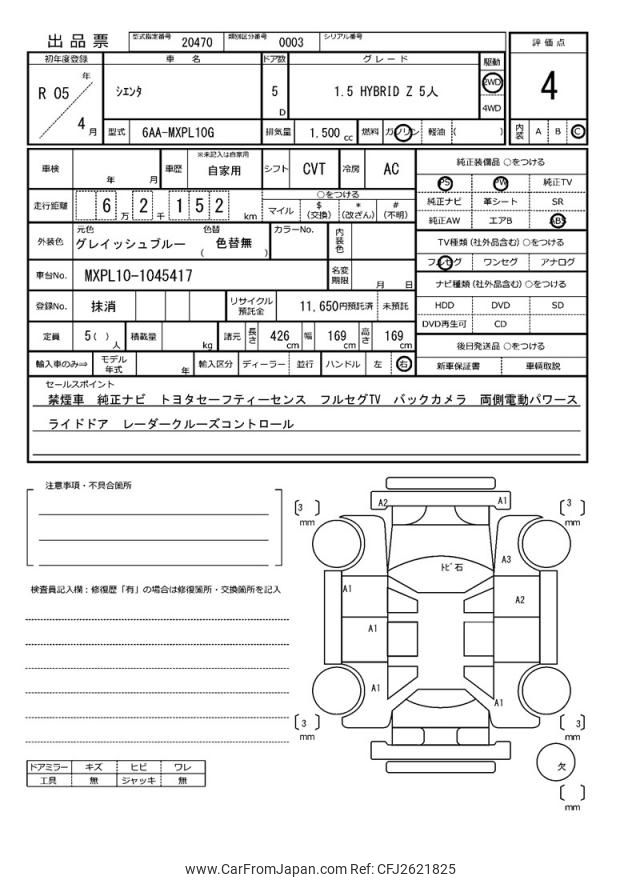 出品票 型式指定番号 20470 類別区分番号 0003 シリアル番号
評価点
4
内装 A B C
初年度登録 車名 ドア数 グレード 駆動
R 05 年 4 月 シエンタ 5 D 1.5 HYBRID Z 5人 2WD
4WD
型式 6AA-MXPL10G 排気量 1,500 cc 燃料 ガソリン 軽油 ( )
車検 年 月 車歴 ※未記入は自家用 自家用 シフト CVT 冷房 AC
走行距離 6 万 2 千 1 5 2 km
○をつける
マイル $ (交換) * (改ざん) # (不明)
外装色 元色 グレイッシュブルー 色替 ( 色替無 ) カラーNo. 内装色
車台No. MXPL10-1045417 名変期限 月 日
登録No. 抹消 リサイクル預託金 11,650円預託済 未預託
定員 5( )人 積載量 kg 諸元 長さ 426 cm 幅 169 cm 高さ 169 cm
輸入車のみ⇒ モデル年式 年 輸入区分 ディーラー 並行 ハンドル 左 右
純正装備品 ○をつける
PS PW 純正TV
純正ナビ 革シート SR
純正AW エアB ABS
TV種類 (社外品含む) ○をつける
フルセグ ワンセグ アナログ
ナビ種類 (社外品含む) ○をつける
HDD DVD SD
DVD再生可 CD
後日発送品 ○をつける
新車保証書 車輌取説
セールスポイント
禁煙車 純正ナビ トヨタセーフティーセンス フルセグTV バックカメラ 両側電動パワース
ライドドア レーダークルーズコントロール
注意事項・不具合箇所
検査員記入欄：修復歴「有」の場合は修復箇所・交換箇所を記入
ドアミラー キズ ヒビ ワレ
工具 無 ジャッキ 無
A2 A1
[3] mm
[3] mm
トビ石
A3
A1
A2
A1
A1
A1
[3] mm
[3] mm
欠
[ ] mm
www.CarFromJapan.com Ref: CFJ2621825